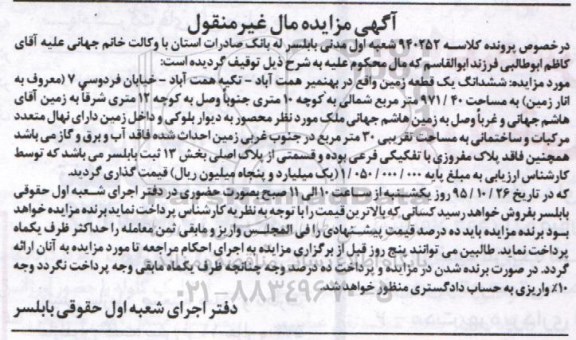 آگهی مزایده مال غیر منقول
درخصوص پرونده کلاسه ۹۴۰۲۵۲ شعبه اول مدنی بابلسر له بانک صادرات استان با وکالت خانم جهانی علیه آقای
کاظم ابوطالبی فرزند ابوالقاسم که مال محکوم علیه به شرح ذیل توقیف گردیده است:
مورد مزایده: ششدانگ یک قطعه زمین واقع در بهنمیر همت آباد - تکیه همت آباد - خیابان فردوسی ۷ (معروف به
انار زمین) به مساحت ۹۷۱/۴۰ متر مربع شمالی به کوچه ۱۰ متری جنوباً وصل به کوچه ۱۲ متری شرقاً به زمین آقای
هاشم جهانی و غرباً وصل به زمین هاشم جهانی ملک مورد نظر محصور به دیوار بلوکی و داخل زمین دارای نهال متعدد
مرکبات و ساختمانی به مساحت تقریبی ۳۰ متر مربع در جنوب غربی زمین احداث شده فاقد آب و برق و گاز می باشد
همچنین فاقد پلاک مفروزی با تفکیکی فرعی بوده و قسمتی از پلاک اصلی بخش ۱۳ ثبت بابلسر می باشد که توسط
کارشناس ارزیابی به مبلغ پایه ۱/۰۵۰/۰۰۰/۰۰۰ (یک میلیارد و پنجاه میلیون ریال) قیمت گذاری گردید.
که در تاریخ ۹۵/۱۰/۲۶ روز یکشنبه از ساعت ۱۰ الی ۱۱ صبح بصورت حضوری در دفتر اجرای شعبه اول حقوقی
بابلسر بفروش خواهد رسید کسانی که بالاترین قیمت را با توجه به نظریه کارشناس پرداخت نماید برنده مزایده خواهد
بود برنده مزایده باید ده درصد قیمت پیشنهادی را فی المجلس واریز و مابقی ثمن معامله را حداکثر ظرف یکماه
پرداخت نماید. طالبین می توانند پنج روز قبل از برگزاری مزایده به اجرای احکام مراجعه تا مورد مزایده به آنان ارائه
گردد. در صورت برنده شدن در مزایده و پرداخت ده درصد وجه چنانچه ظرف یکماه مابقی وجه پرداخت نگردد وجه
۱۰٪ واریزی به حساب دادگستری منظور خواهد شد.
۰۲۱-۸۸۳۴۹۶۷۰-۵
دفتر اجرای شعبه اول حقوقی بابلسر